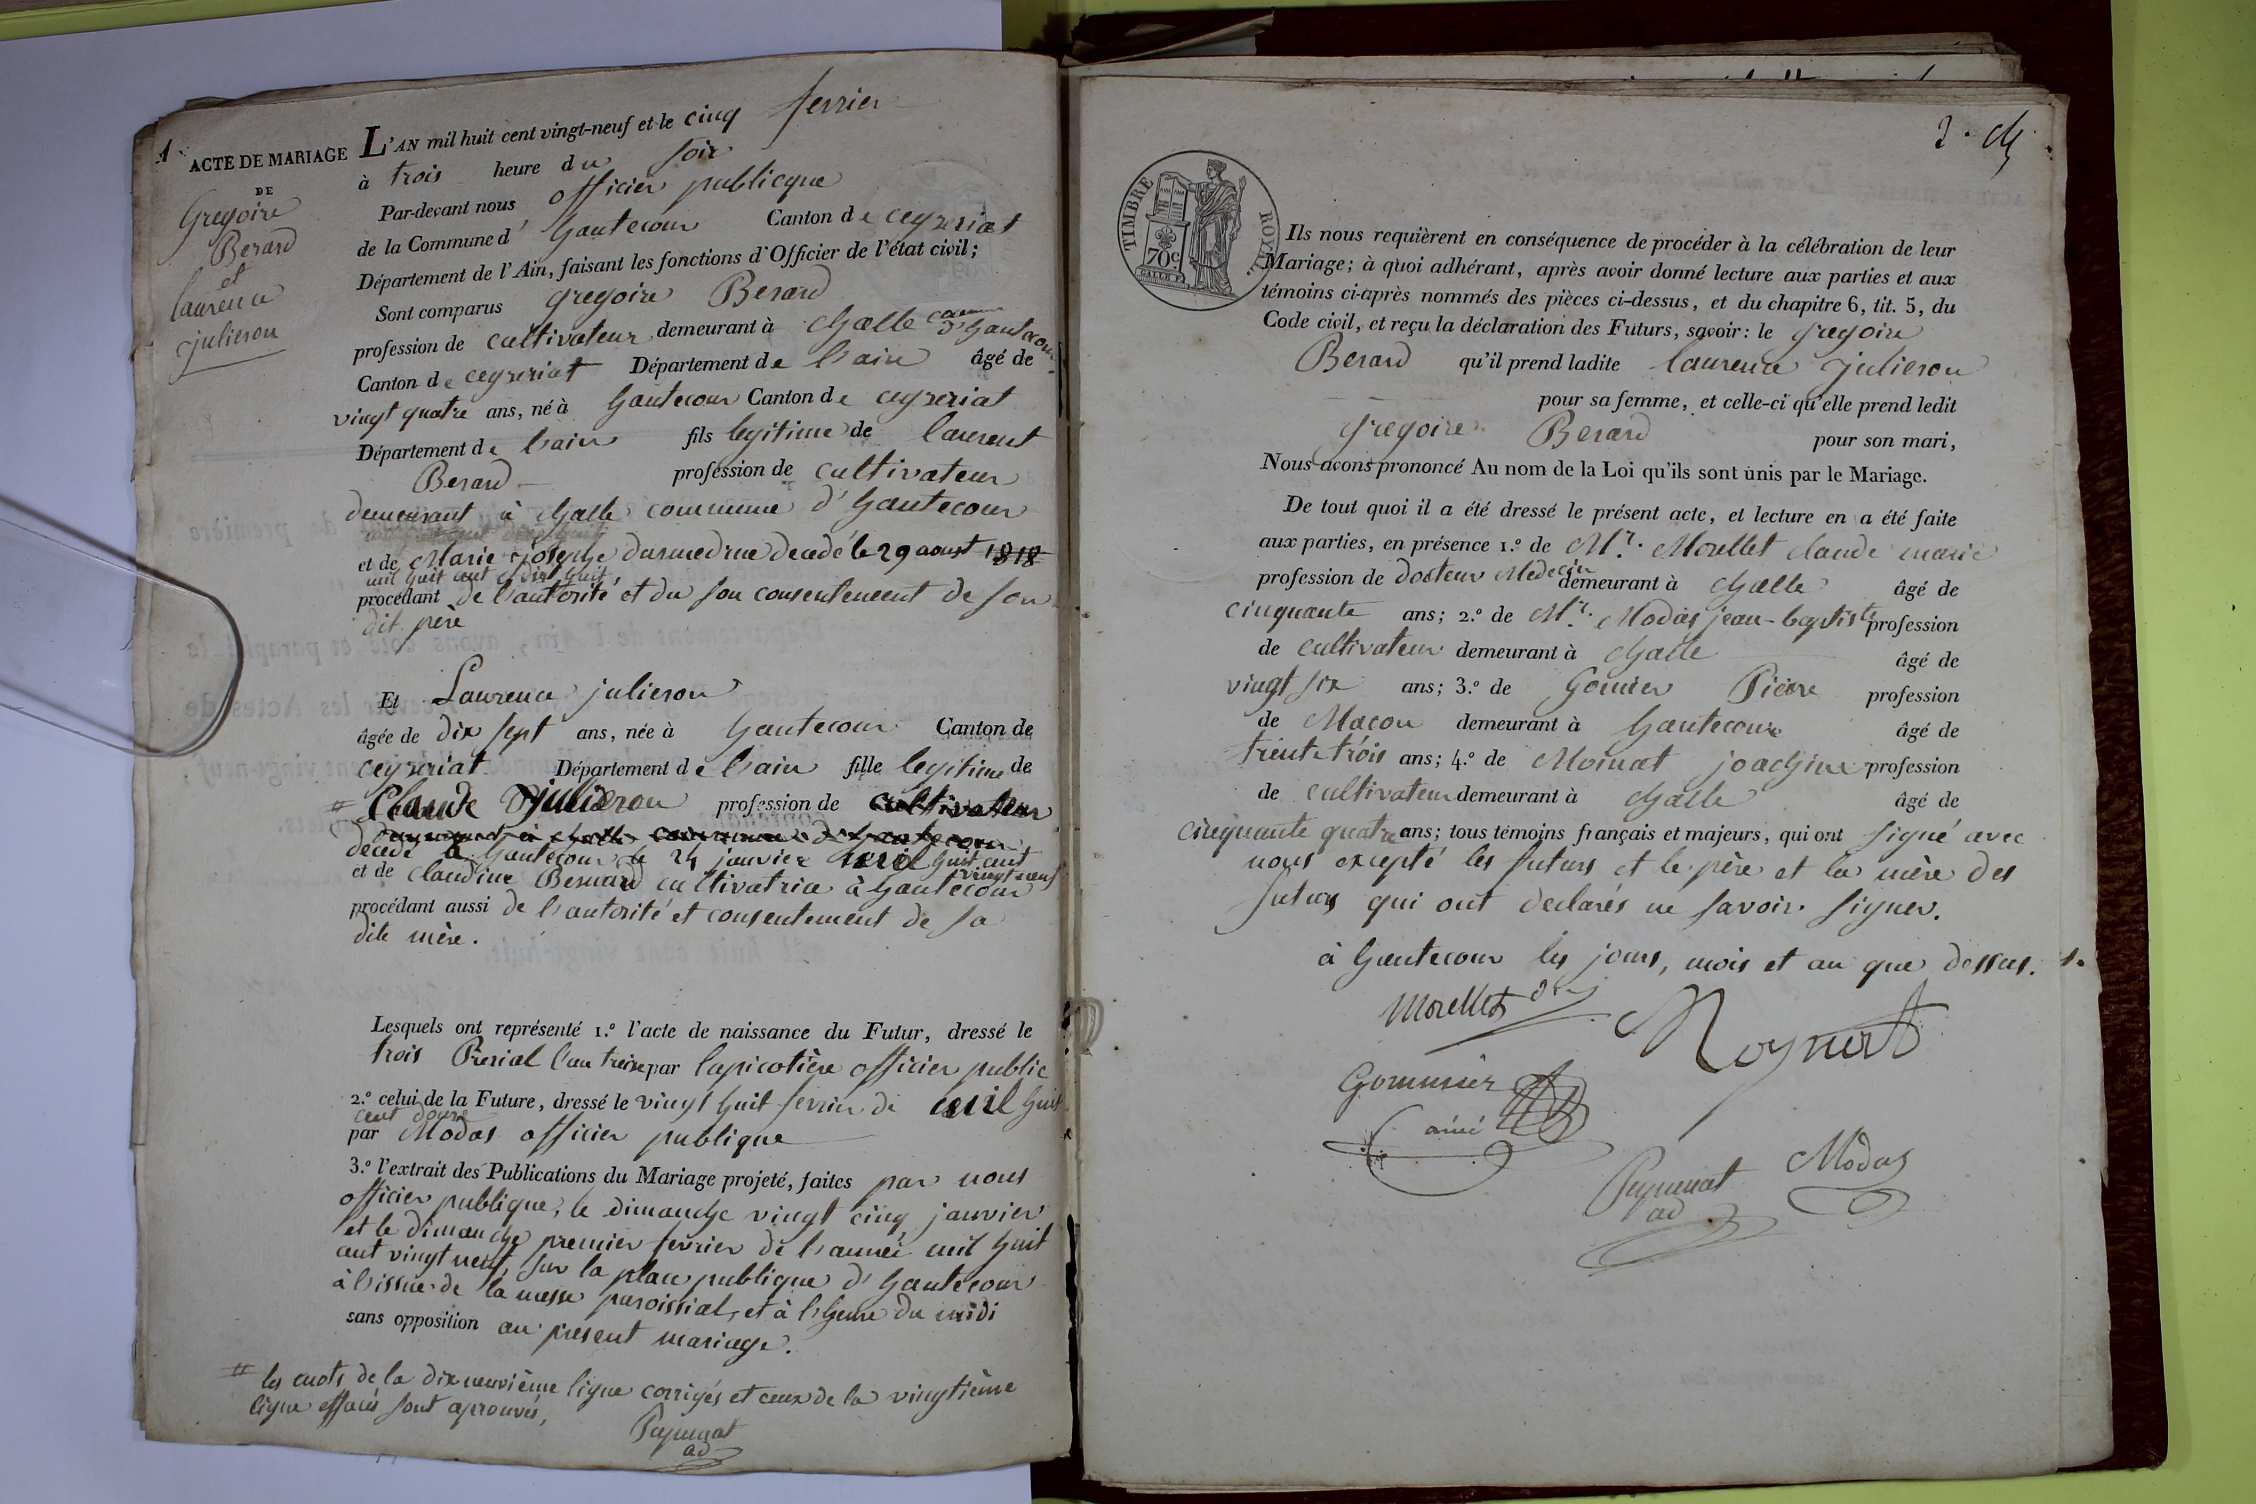 1
ACTE DE MARIAGE
DE
Gregoire
Berard
et
laurence
julieron
L'AN mil huit cent vingt-neuf et le cinq fevrier
à trois heure du soir
Par-devant nous officier publicque
de la Commune d' hautecour Canton de ceyzeriat
Département de l'Ain, faisant les fonctions d'Officier de l'état civil;
Sont comparus gregoire Berard
profession de cultivateur demeurant à challe comm d'hautecour
Canton de ceyzeriat Département de l'ain âgé de
vingt quatre ans, né à hautecour Canton de ceyzeriat
Département de l'ain fils legitime de laurent
Berard profession de cultivateur
demeurant à challe commune d'hautecour
et de Marie josephe decedé le 29 aoust 1818
mil huit cent dix huit
procédant de l'autorité et du son consentement de son
dit père
Et Laurence julieron
âgée de dix sept ans, née à hautecour Canton de
ceyzeriat Département de l'ain fille legitime de
# Claude julieron profession de cultivateur
demeurant à challe commune d'hautecour
decedé à hautecour le 24 janvier mil huit cent
vingt neuf
et de claudine Bernard cultivatrice à hautecour
procédant aussi de l'autorité et consentement de sa
dite mère.
Lesquels ont représenté 1.º l'acte de naissance du Futur, dressé le
trois Prerial l'an treize par lapicotière officier public
2.º celui de la Future, dressé le vingt huit fevrier de mil huit
cent douze
par Modas officier publique
3.º l'extrait des Publications du Mariage projeté, faites par nous
officier publique, le dimanche vingt cinq janvier
et le dimanche premier fevrier de l'année mil huit
cent vingt neuf, sur la place publique d'hautecour
à l'issue de la messe paroissial, et à l'heure du midi
sans opposition au présent mariage.
# les mots de la dix neuvième ligne corrigés et ceux de la vingtième
ligne effacés sont aprouvés,
Peymnat
ad
2.
TIMBRE ROYAL
70c
Ils nous requièrent en conséquence de procéder à la célébration de leur
Mariage; à quoi adhérant, après avoir donné lecture aux parties et aux
témoins ci-après nommés des pièces ci-dessus, et du chapitre 6, tit. 5, du
Code civil, et reçu la déclaration des Futurs, savoir: le gregoire
Berard qu'il prend ladite laurence julieron
pour sa femme, et celle-ci qu'elle prend ledit
gregoire Berard pour son mari,
Nous avons prononcé Au nom de la Loi qu'ils sont unis par le Mariage.
De tout quoi il a été dressé le présent acte, et lecture en a été faite
aux parties, en présence 1.º de Mr. Morellet claude marie
profession de docteur Medecin demeurant à challe âgé de
cinquante ans; 2.º de Mr. Modas jean-baptiste profession
de cultivateur demeurant à challe âgé de
vingt six ans; 3.º de Gomier Pierre profession
de Macon demeurant à hautecour âgé de
trente trois ans; 4.º de Moinat joachim profession
de cultivateur demeurant à challe âgé de
cinquante quatre ans; tous témoins français et majeurs, qui ont signé avec
nous excepté les futurs et le père et la mère des
futurs qui ont declarés ne savoir signer.
à hautecour les jours, mois et an que dessus.
Morellet
Gommier
ainé
Modas
ad